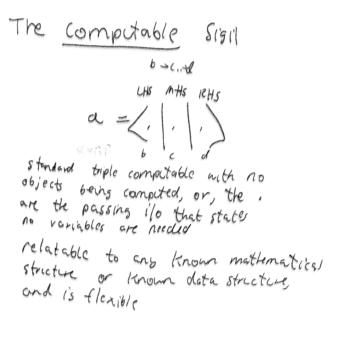 The computable Sigil
b → c..d
LHS MHS RHS
a = < . | . | . >
b c d
standard triple computable with no
objects being computed, or, the .
are the passing i/o that states
no variables are needed
relatable to any known mathematical
structure or known data structure,
and is flexible